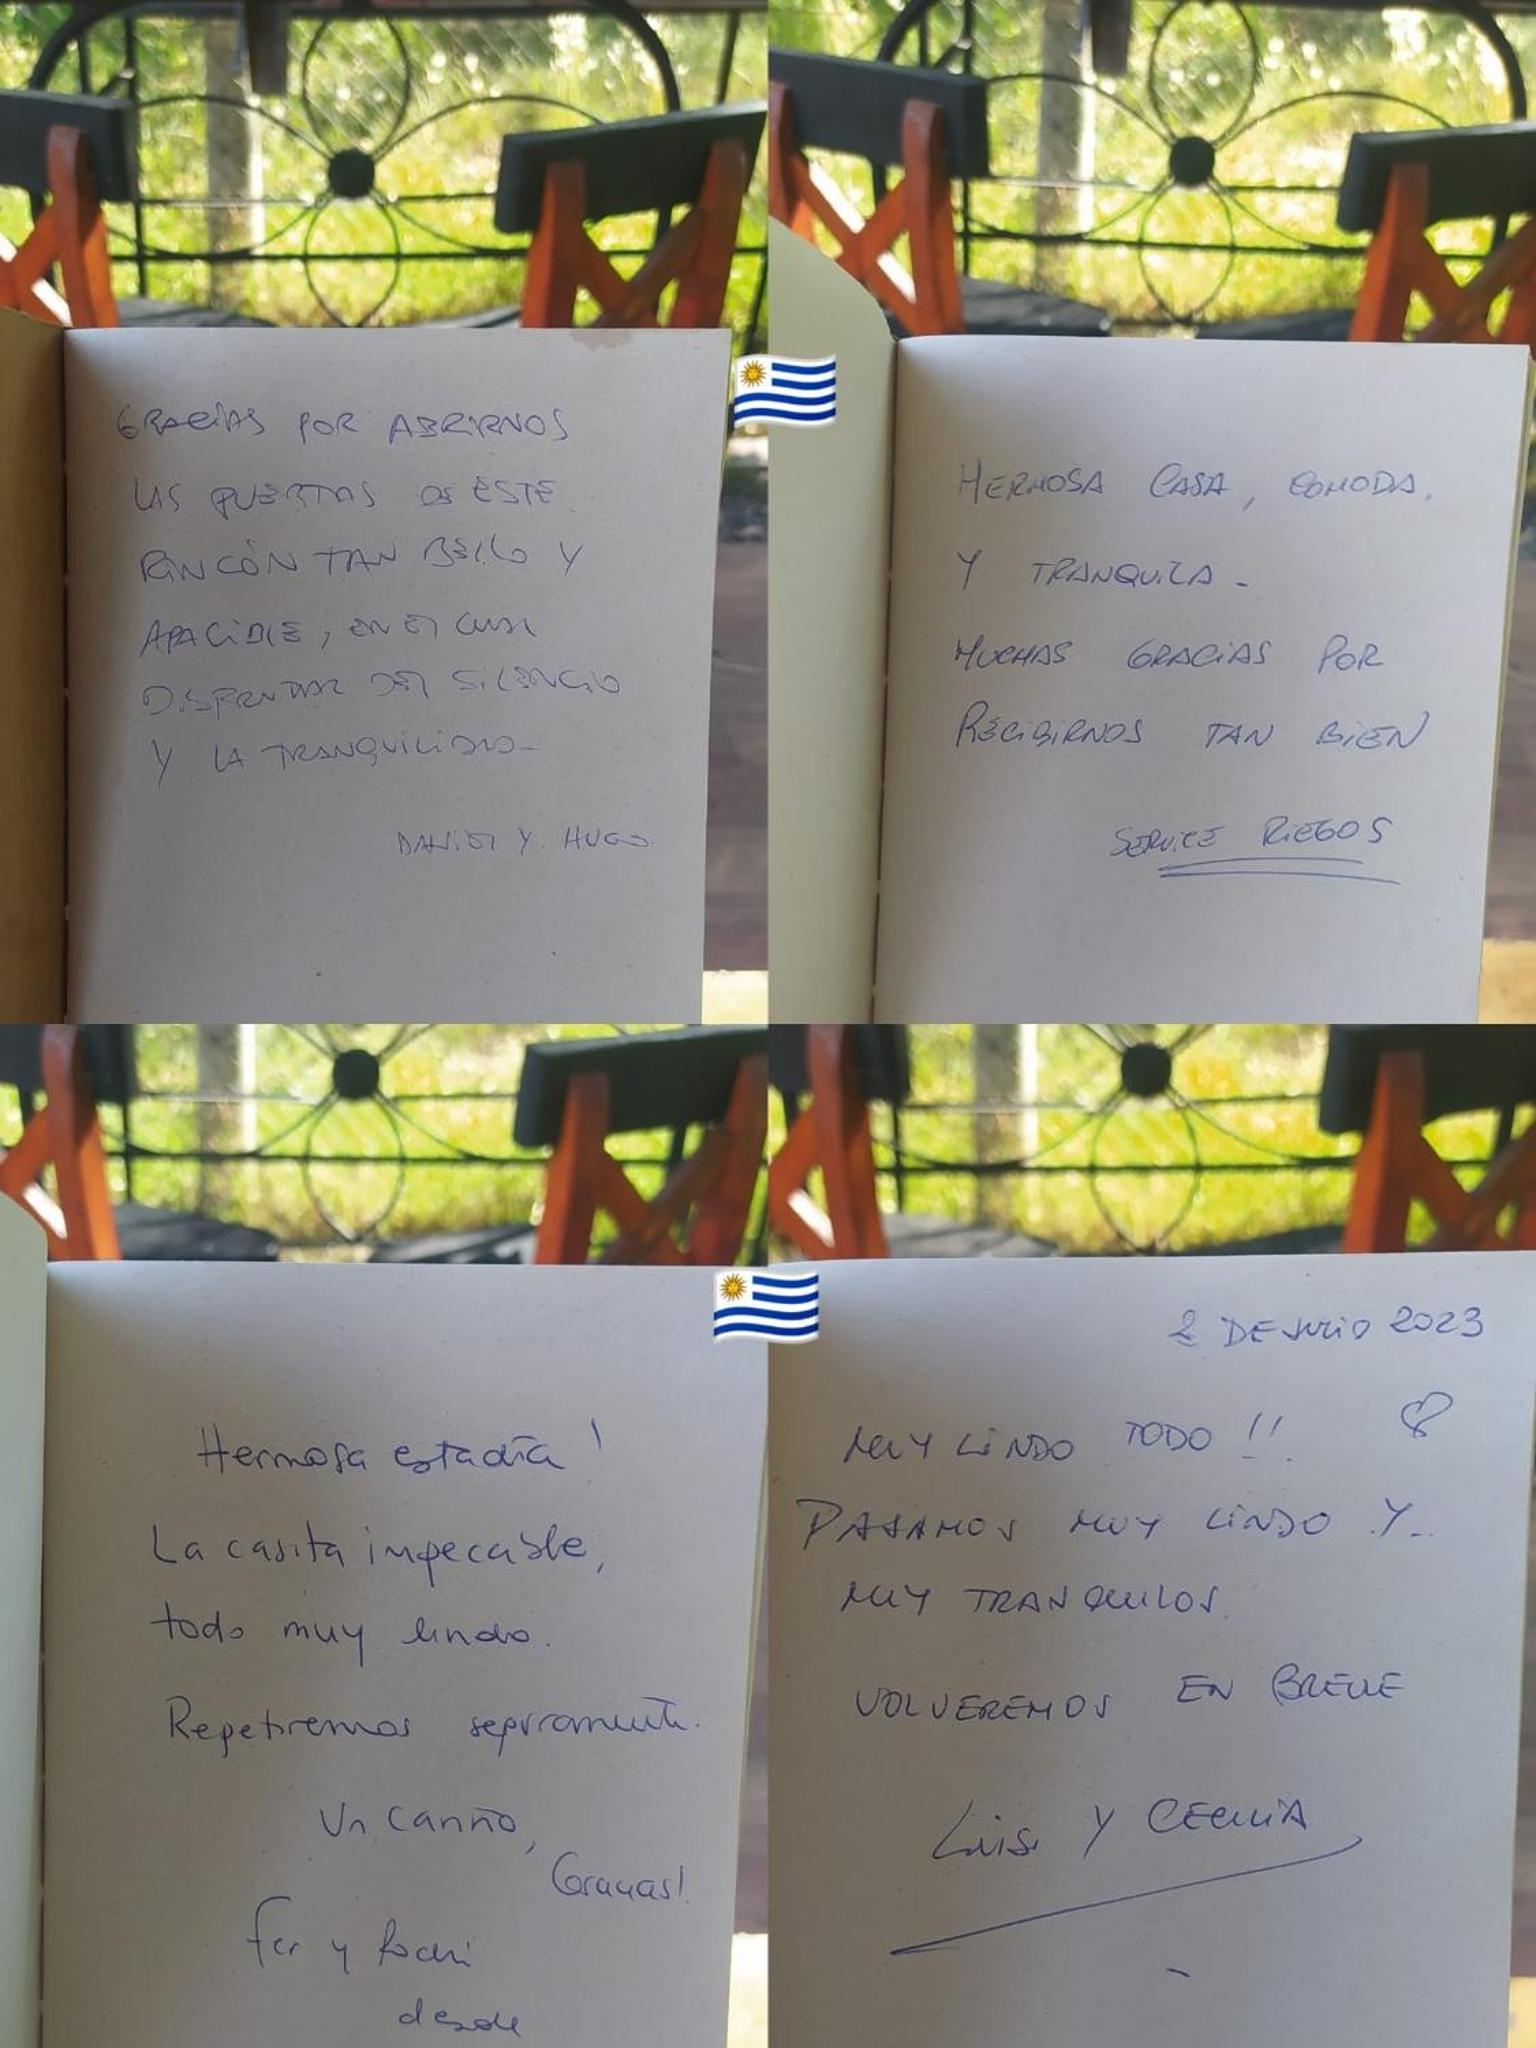 GRACIAS POR ABRIRNOS
LAS PUERTAS DE ESTE
RINCÓN TAN BELLO Y
APACIBLE, EN EL CUAL
DISFRUTAR DEL SILENCIO
Y LA TRANQUILIDAD-
DANIEL Y HUGO
HERMOSA CASA, COMODA,
Y TRANQUILA-
MUCHAS GRACIAS POR
RECIBIRNOS TAN BIEN
SERVICE RIEGOS
Hermosa estadía!
La casita impecable,
todo muy lindo.
Repetiremos seguramente.
Un cariño,
Gracias!
Fer y Rochi
desde
2 DE JULIO 2023
MUY LINDO TODO!!
PASAMOS MUY LINDO Y..
MUY TRANQUILOS.
VOLVEREMOS EN BREVE
LUIS Y CECILIA